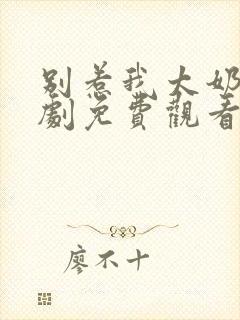 别惹我大奶
劇免費觀看
廖不十